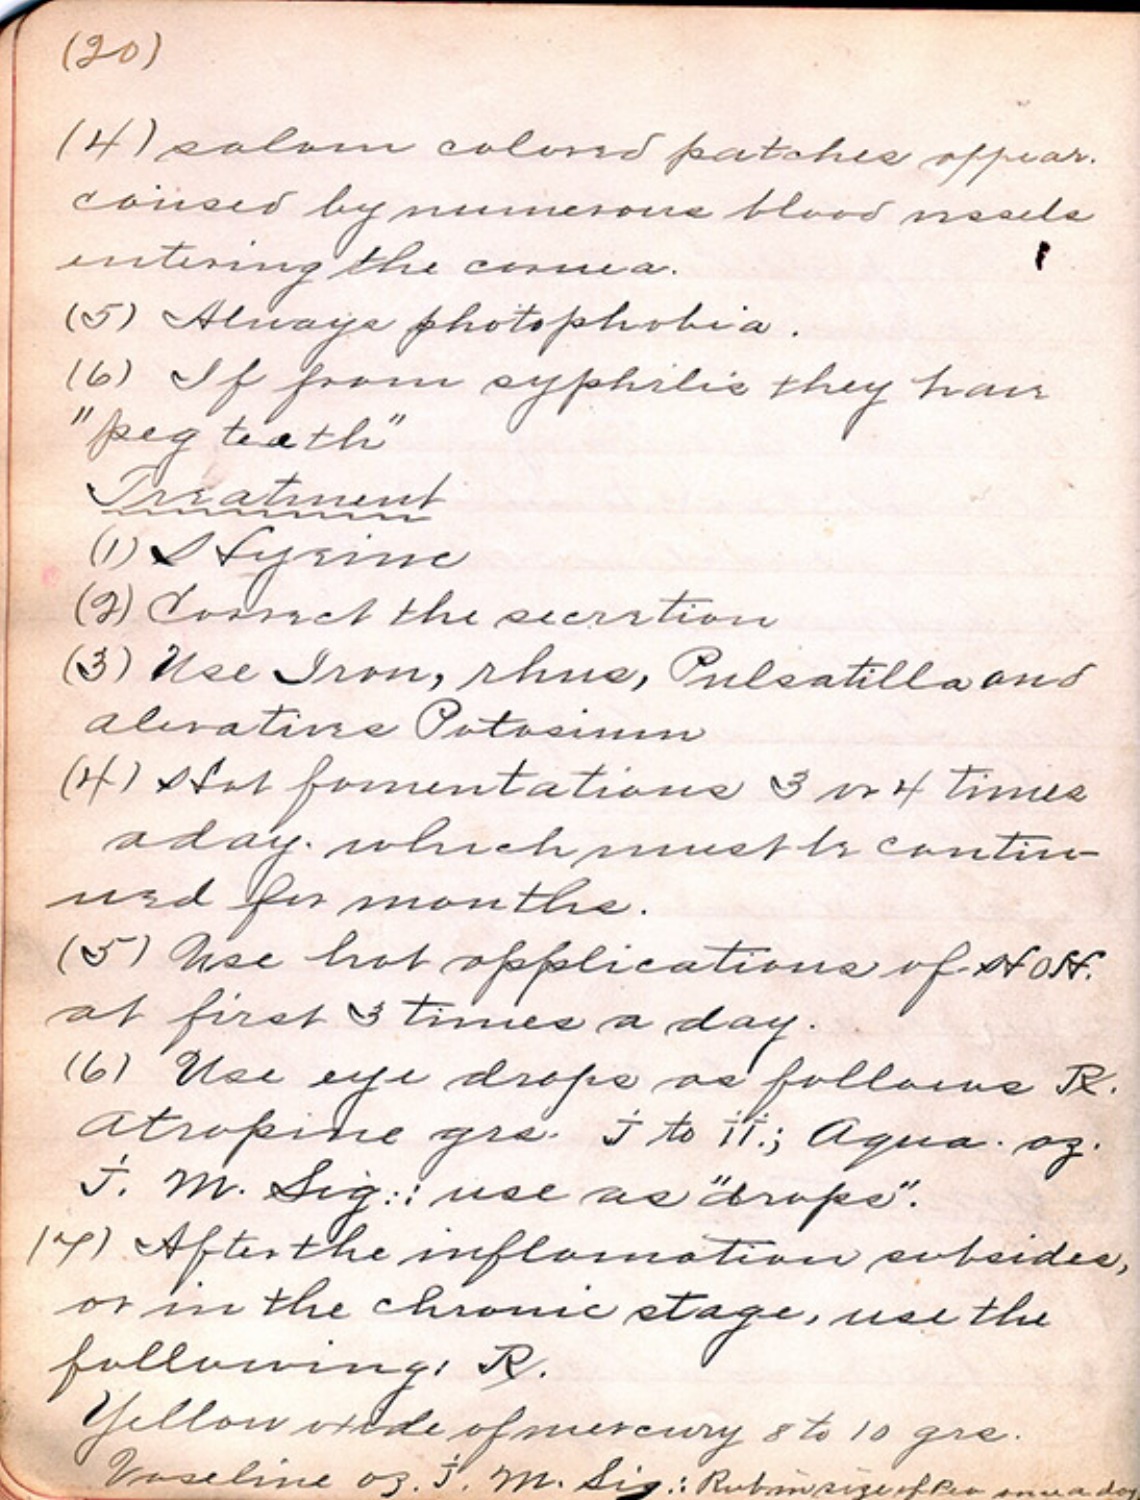 (20)
(4) salom colored patches appear.
caused by numerous blood vessels
entering the cornea.
(5) Always photophobia.
(6) If from syphilis they have
"peg teeth"
Treatment
(1) Hygiene
(2) Correct the secretion
(3) Use Iron, rhus, Pulsatilla and
alevatives Potasium
(4) Hot fomentations 3 or 4 times
a day. which must be contin-
ued for months.
(5) Use hot applications of HOH.
at first 3 times a day.
(6) Use eye drops as follows ℞.
Atropine grs. j to ii.; Aqua. oz.
j. M. Sig.: use as "drops".
(7) After the inflamation subsides,
or in the chronic stage, use the
following: ℞.
Yellow oxide of mercury 8 to 10 grs.
Vaseline oz. j. M. Sig.: Rub in size of Pea once a day